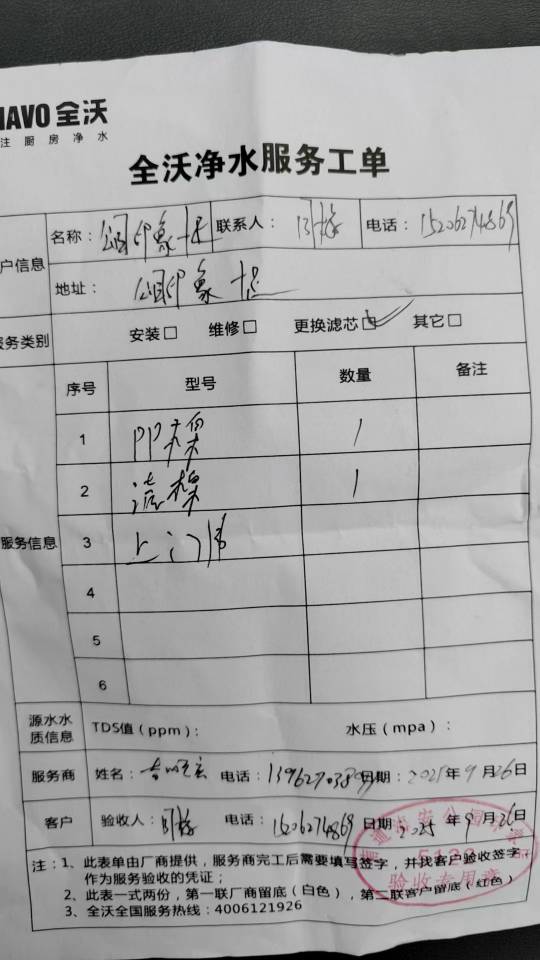 NAVO 全沃
注厨房净水
全沃净水服务工单
户信息
名称： 印象 联系人： 电话：15206274869
地址： 印象
服务类别 安装□ 维修□ 更换滤芯☑ 其它□
服务信息
序号 型号 数量 备注
1 PP棉 1
2 1
3 上门费
4
5
6
源水水质信息 TDS值（ppm）： 水压（mpa）：
服务商 姓名： 电话： 日期：2025年9月26日
客户 验收人： 电话：15206274869 日期：2025年9月26日
注：1、此表单由厂商提供，服务商完工后需要填写签字，并找客户验收签字，
作为服务验收的凭证；
2、此表一式两份，第一联厂商留底（白色），第二联客户留底（红色）
3、全沃全国服务热线：4006121926
验收专用章